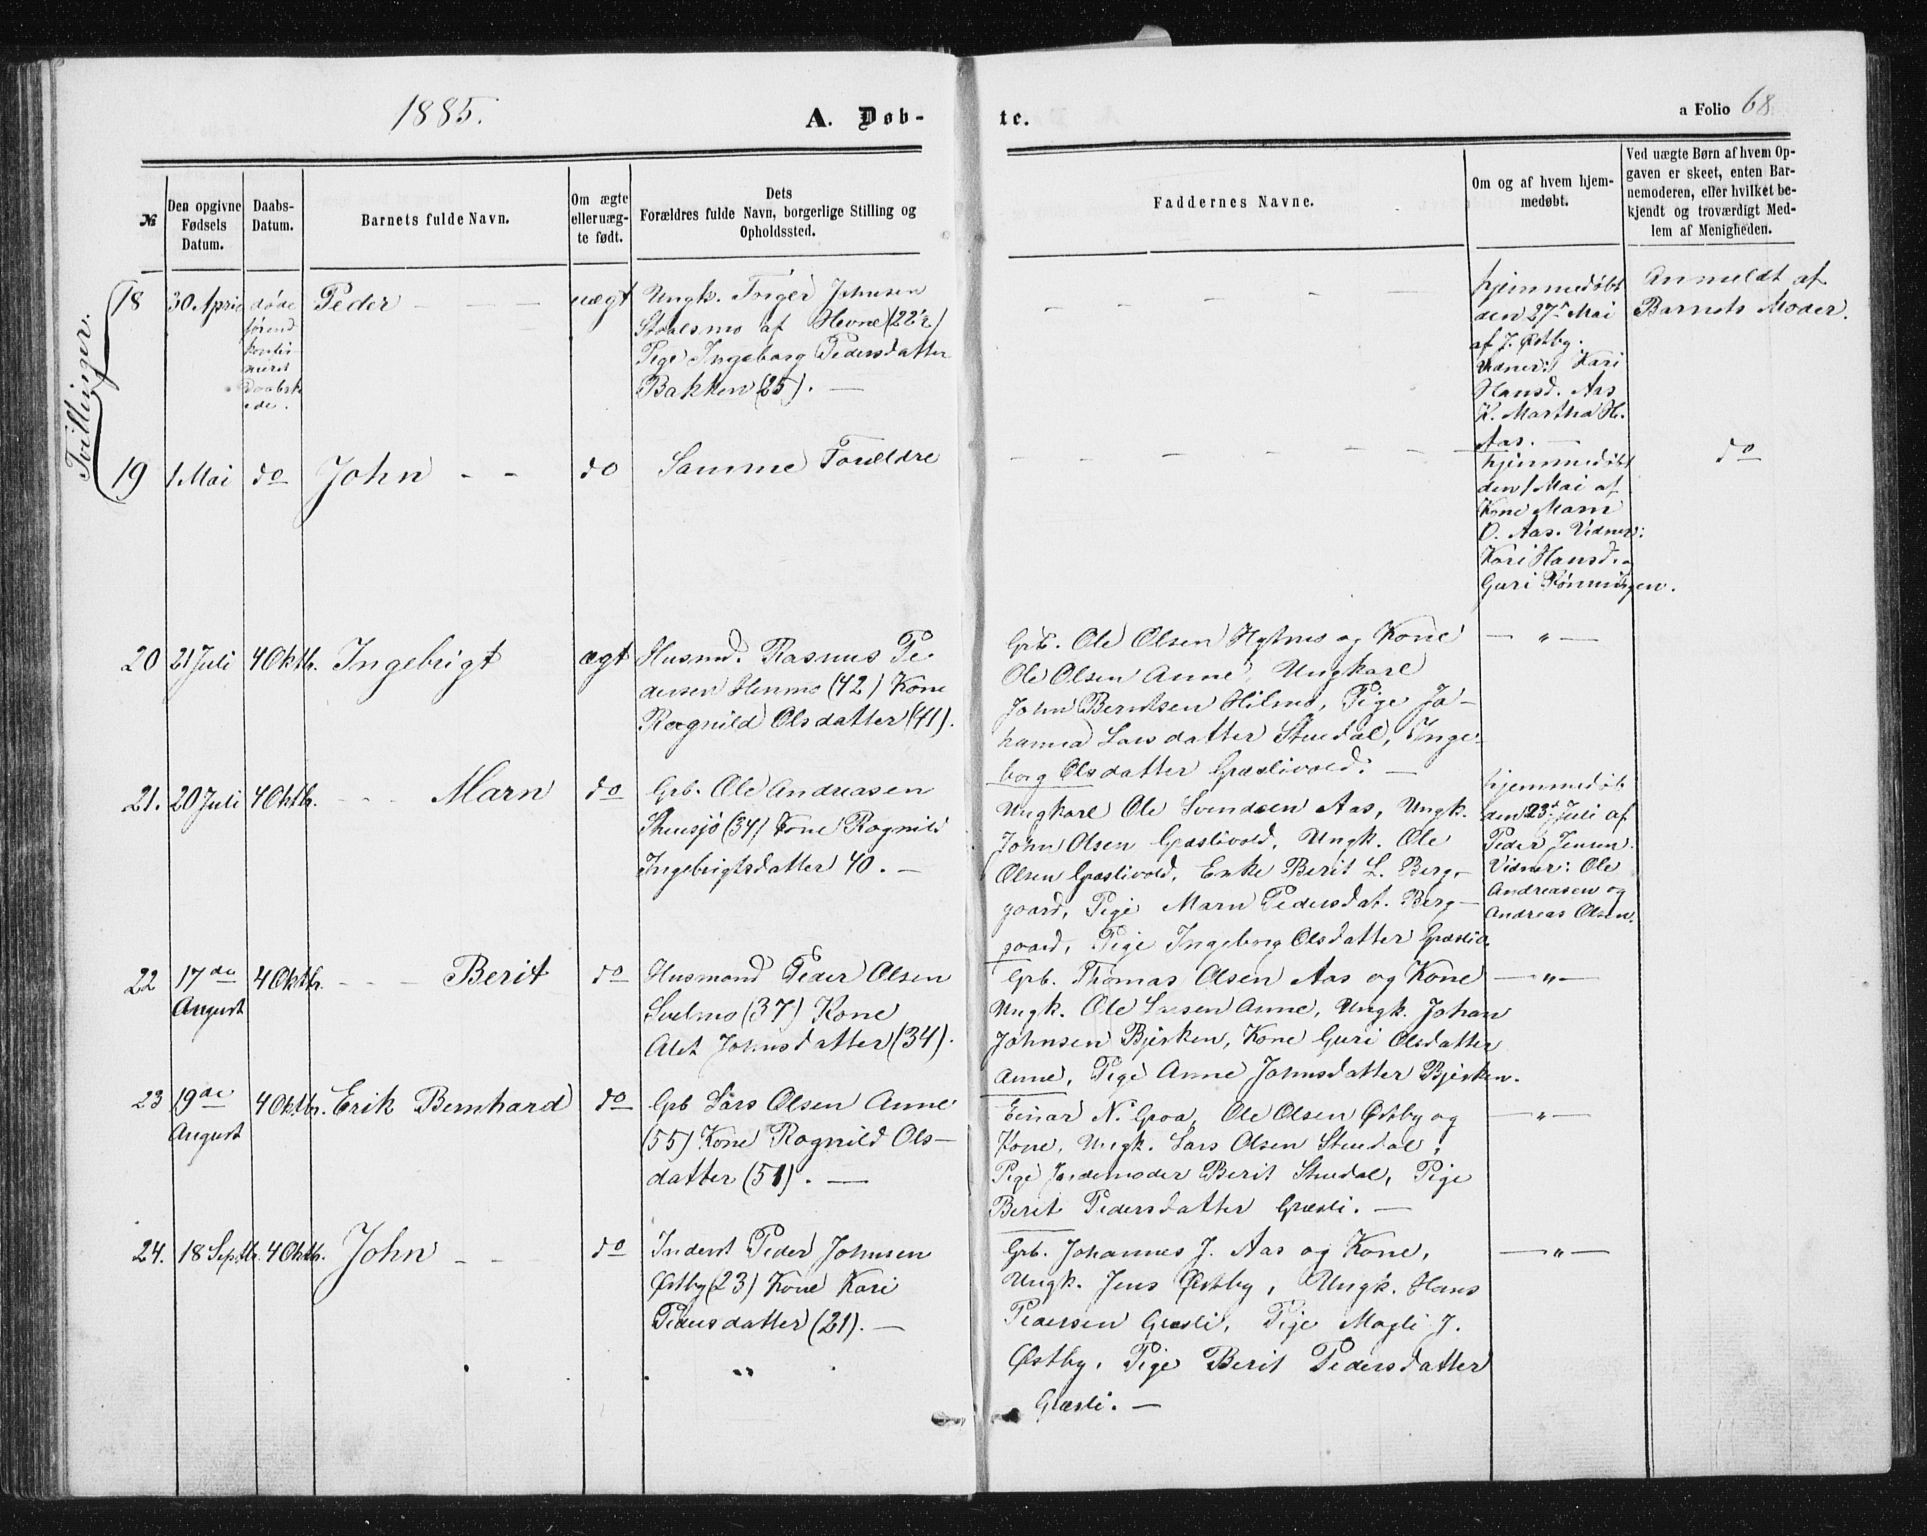 1885.
A. Døb-
te.
a Folio 68
№
Den opgivne
Fødsels
Datum.
Daabs-
Datum.
Barnets fulde Navn.
Om ægte
eller uæg-
te født.
Dets
Forældres fulde Navn, borgerlige Stilling og
Opholdssted.
Faddernes Navne.
Om og af hvem hjem-
medøbt.
Ved uægte Børn af hvem Op-
gaven er skeet, enten Bar-
nemoderen, eller hvilket be-
kjendt og troværdigt Med-
lem af Menigheden.
Tvillinger.
18 30 April døde
førend
Daabsh
ede.
Peder - - -
uægt
Ungk. Johnsen
af Hevne (22 ½)
Pige Ingeborg Pedersdatter
Bakken (25). —
hjemmedøbt
den 27de Mai
af J. Østby.
Vidner: Kari
Hansd. Aas
K. Martha H.
Aas. —
Anmeldt af
Barnets Moder.
19 1 Mai do John - - do Samme Forældre
hjemmedøbt
den 1 Mai af
Kone Marn
O. Aas. Vidner:
Kari Hansd. og
Guri Rønningen.
do
20 21 Juli 4 Oktbr. Ingebrigt ægt
Husmd. Rasmus Pe-
dersen Henmo (42) Kone
Ragnild Olsdatter (41).
Grb. Ole Olsen og Kone
Ole Olsen Anne, Ungkarl
John Berntsen Hilmo, Pige Jo-
hanna Larsdatter Stuedal, Inge-
borg Olsdatter Græslivold. —
— " —
21. 20 Juli 4 Oktbr. - - - Marn do
Grb. Ole Andreasen
Stensjø (34) Kone Ragnild
Ingebrigtsdatter 40. —
Ungkarl Ole Svendsen Aas, Ungk.
John Olsen Græslivold, Ungk. Ole
Olsen Græslivold, Enke Berit L. Berg-
gaard, Pige Marn Pedersdat. Berg-
gaard, Pige Ingeborg Olsdatter Græsliv.
hjemmedøb
den 23de Juli af
Peder Jensen.
Vidner: Ole
Andreasen og
Andreas Olsen.
22 17de
August
4 Oktbr. - - - Berit do
Husmand Peder Olsen
Svelmo (37) Kone
Alet Johnsdatter (34).
Grb. Thomas Olsen Aas og Kone
Ungk. Ole Larsen Anne, Ungk. Johan
Johnsen Bjerken, Kone Guri Olsdatter
Anne, Pige Anne Johnsdatter Bjerken.
— " —
23 19de
August
4 Oktbr. Erik Bernhard do
Grb Lars Olsen Anne
(55) Kone Ragnild Ols-
datter (51). —
Einar N. Groa, Ole Olsen Østby og
Kone, Ungk. Lars Olsen Stuedal,
Pige Jordemoder Berit Stuedal, Pige
Berit Pedersdatter Græsli. —
— " —
24. 18 Septbr. 4 Oktbr. John - - do
Inderst Peder Johnsen
Østby (23) Kone Kari
Pedersdatter (21). —
"
Grb. Johannes J. Aas og Kone,
Ungk. Jens Østby, Ungk. Hans
Pedersen Græsli, Pige Magli J.
Østby, Pige Berit Pedersdatter
Græsli. —
— " —